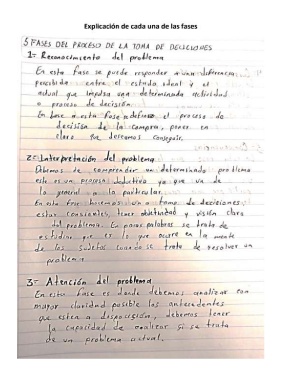 Explicación de cada una de las fases
5 FASES DEL PROCESO DE LA TOMA DE DECISIONES
1- Reconocimiento del problema
En esta fase se puede responder a una diferencia
percibida entre el estado ideal y el
actual que impulsa una determinada actividad
o proceso de decisión.
En base a esta fase el proceso de
decisión de la compra, poner en
claro que deseamos conseguir.
2- Interpretación del problema
Debemos de comprender un determinado problema
este es un proceso deductivo ya que va de
lo general a lo particular.
En esta fase hacemos una toma de decisiones y
estar conscientes, tener objetividad y visión clara
del problema. En pocas palabras se trata de
estudiar que es lo que ocurre en la mente
de los sujetos cuando se trata de resolver un
problema.
3- Atención del problema
En esta fase es donde debemos analizar con
mayor claridad posible los antecedentes
que esten a disposición, debemos tener
la capacidad de analizar si se trata
de un problema actual.